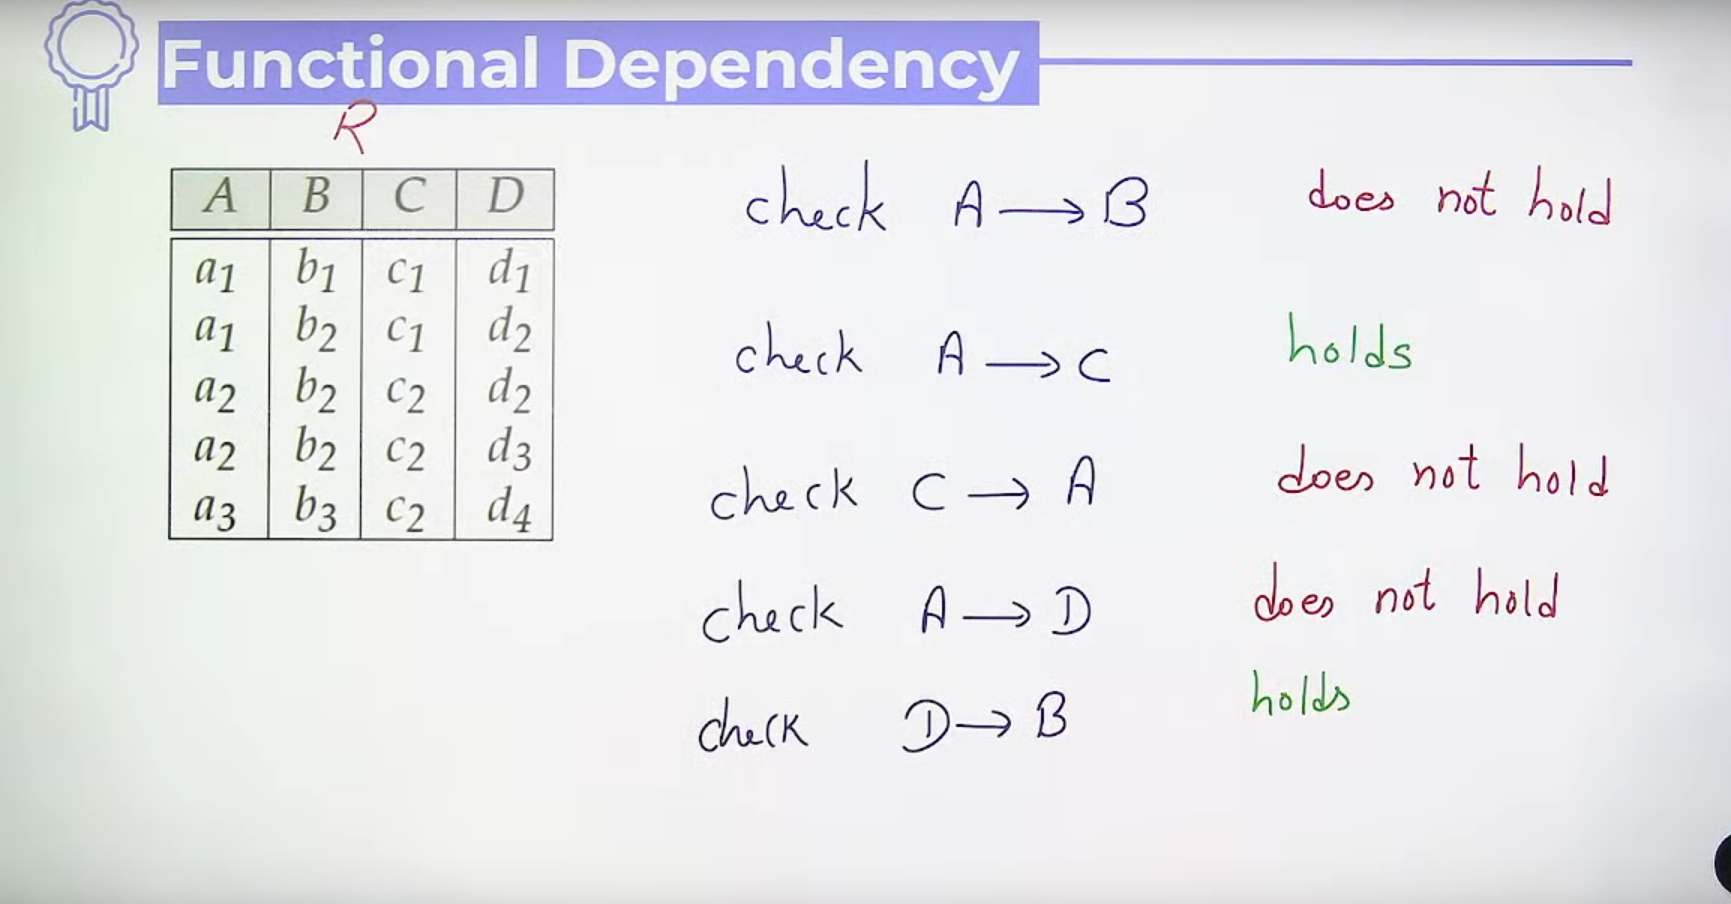 Functional Dependency
R
A B C D
a1 b1 c1 d1
a1 b2 c1 d2
a2 b2 c2 d2
a2 b2 c2 d3
a3 b3 c2 d4
check A → B does not hold
check A → C holds
check C → A does not hold
check A → D does not hold
check D → B holds